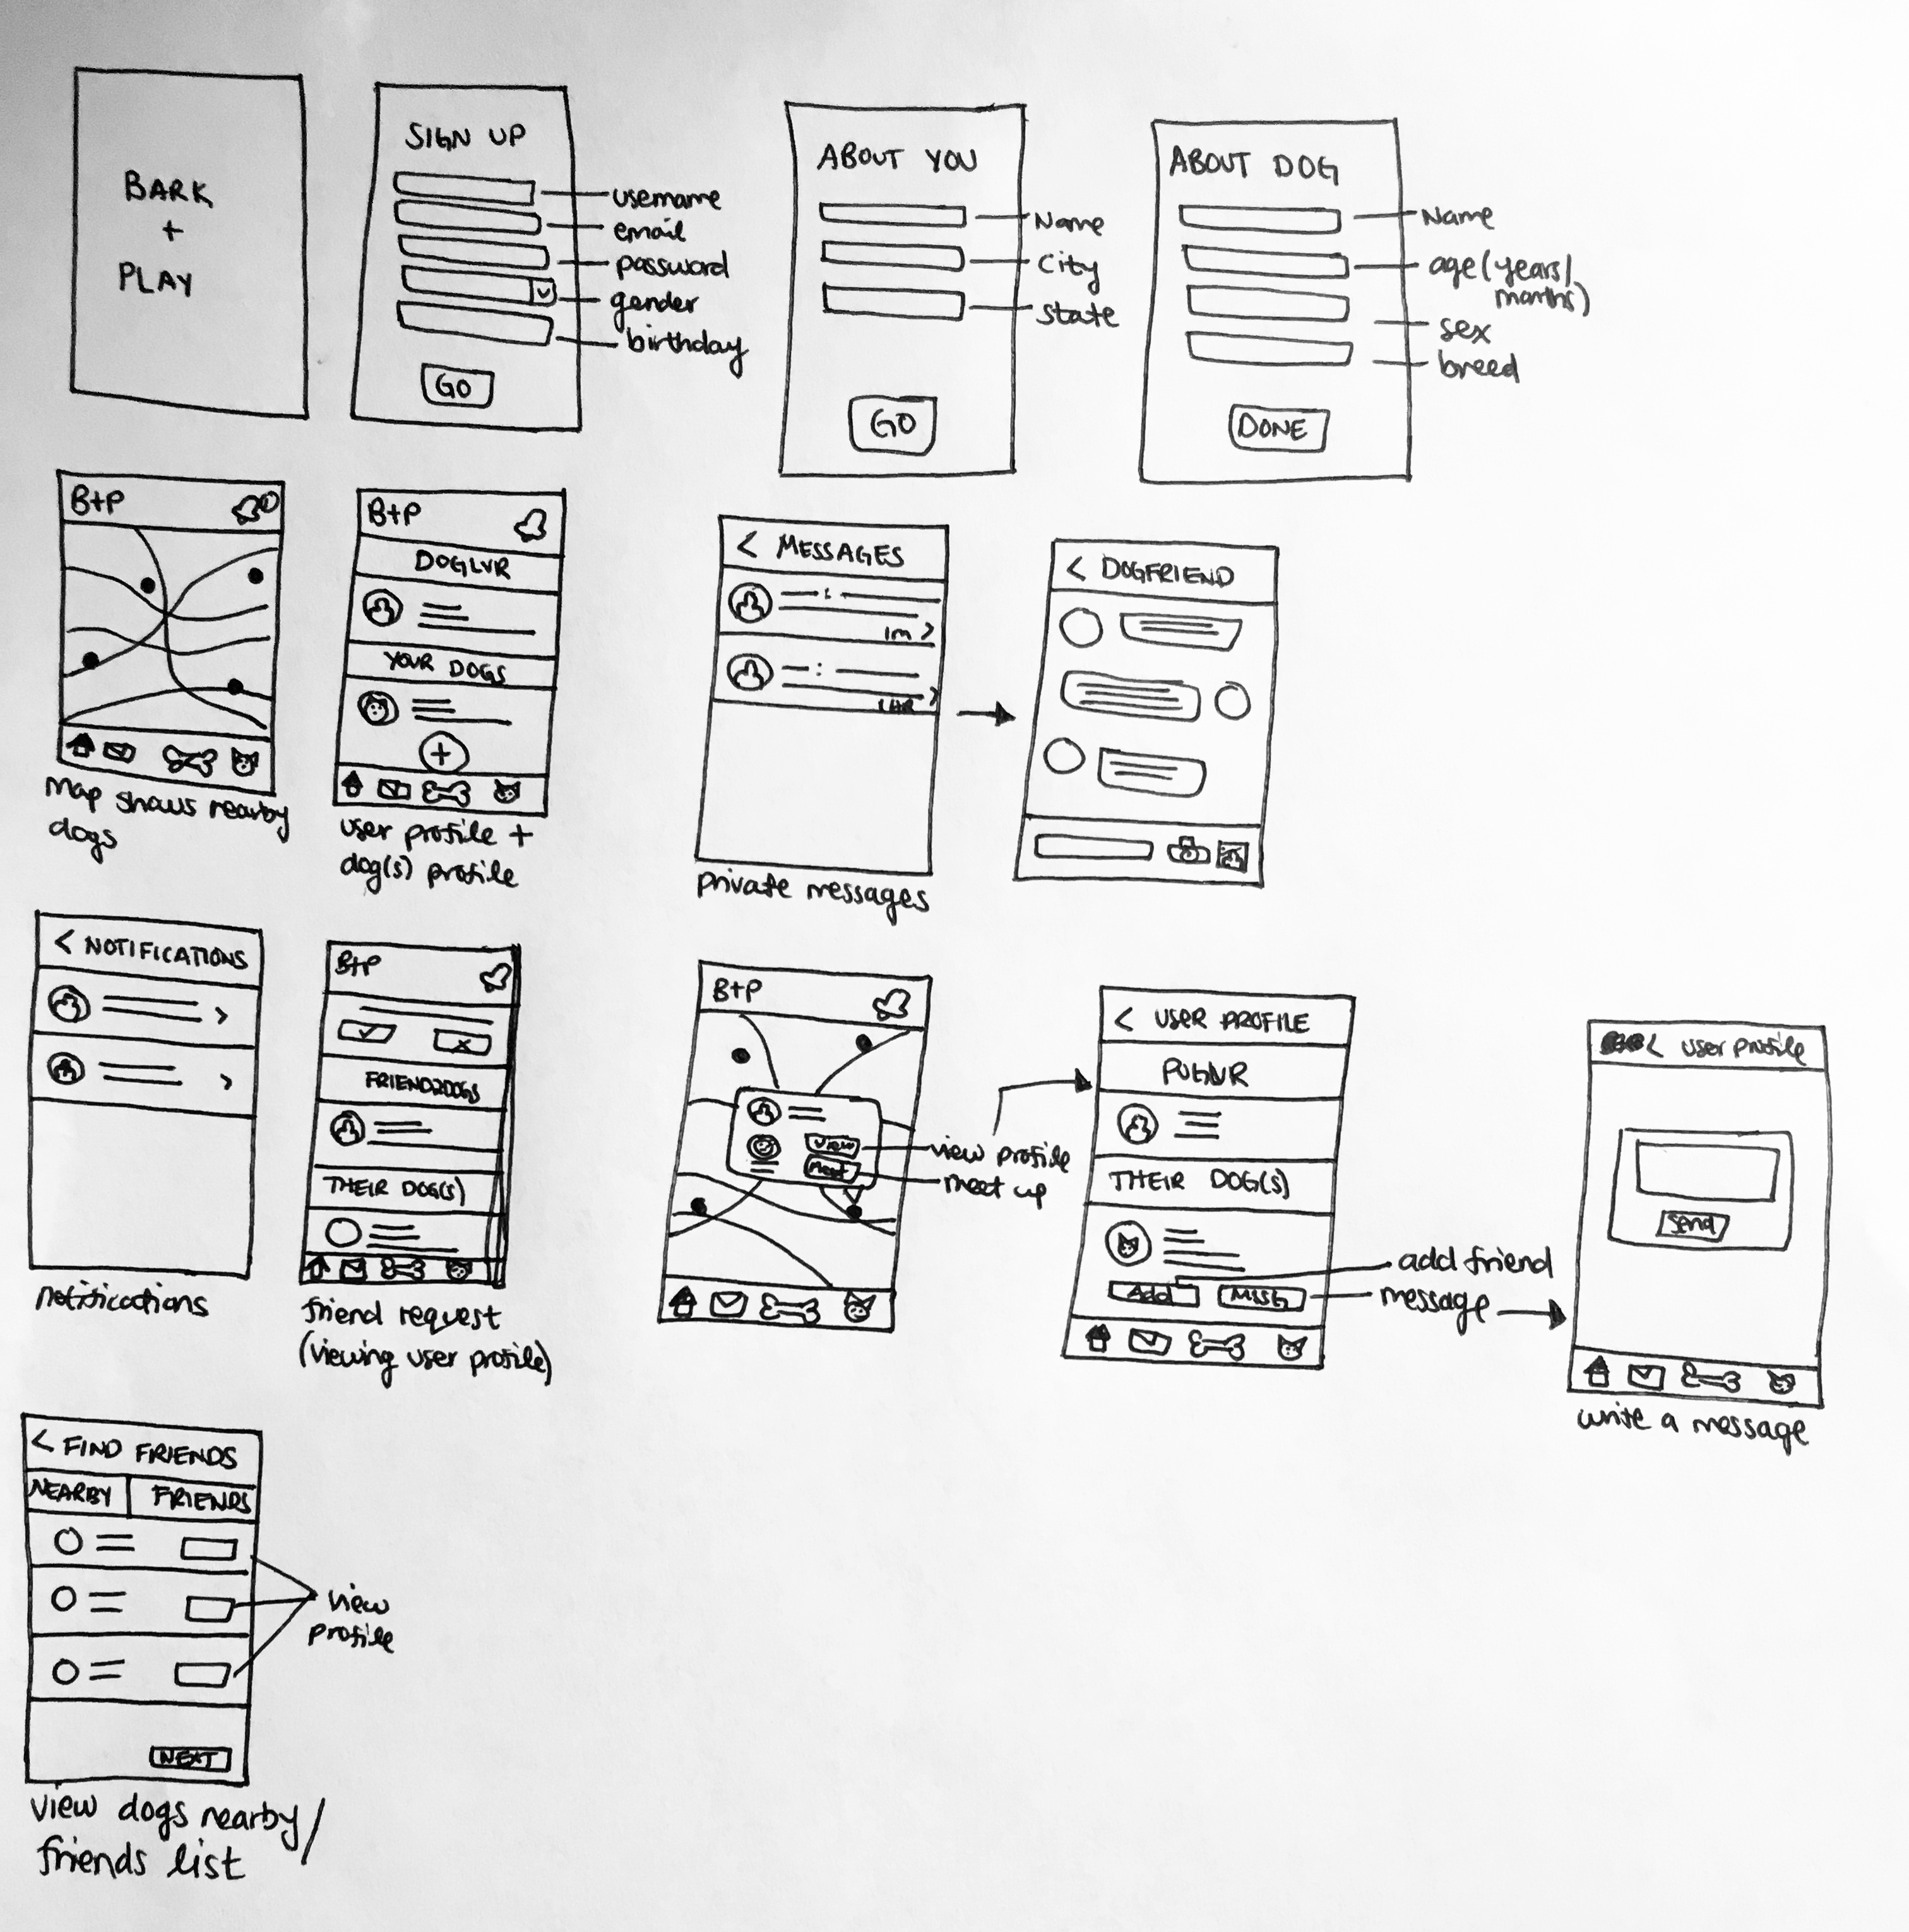 BARK
+
PLAY
SIGN UP
username
email
password
gender
birthday
GO
ABOUT YOU
Name
City
State
GO
ABOUT DOG
Name
age (years/
months)
sex
breed
DONE
B+P
map shows nearby
dogs
B+P
DOGLVR
YOUR DOGS
+
user profile +
dog(s) profile
< MESSAGES
1m >
1HR >
private messages
< DOGFRIEND
< NOTIFICATIONS
>
>
notifications
B+P
FRIEND2DOGS
THEIR DOG(S)
friend request
(viewing user profile)
B+P
View
Meet
view profile
meet up
< USER PROFILE
PUGLVR
THEIR DOG(S)
Add
MSSG
add friend
message
< user profile
Send
write a message
< FIND FRIENDS
NEARBY
FRIENDS
view
profile
NEXT
view dogs nearby/
friends list